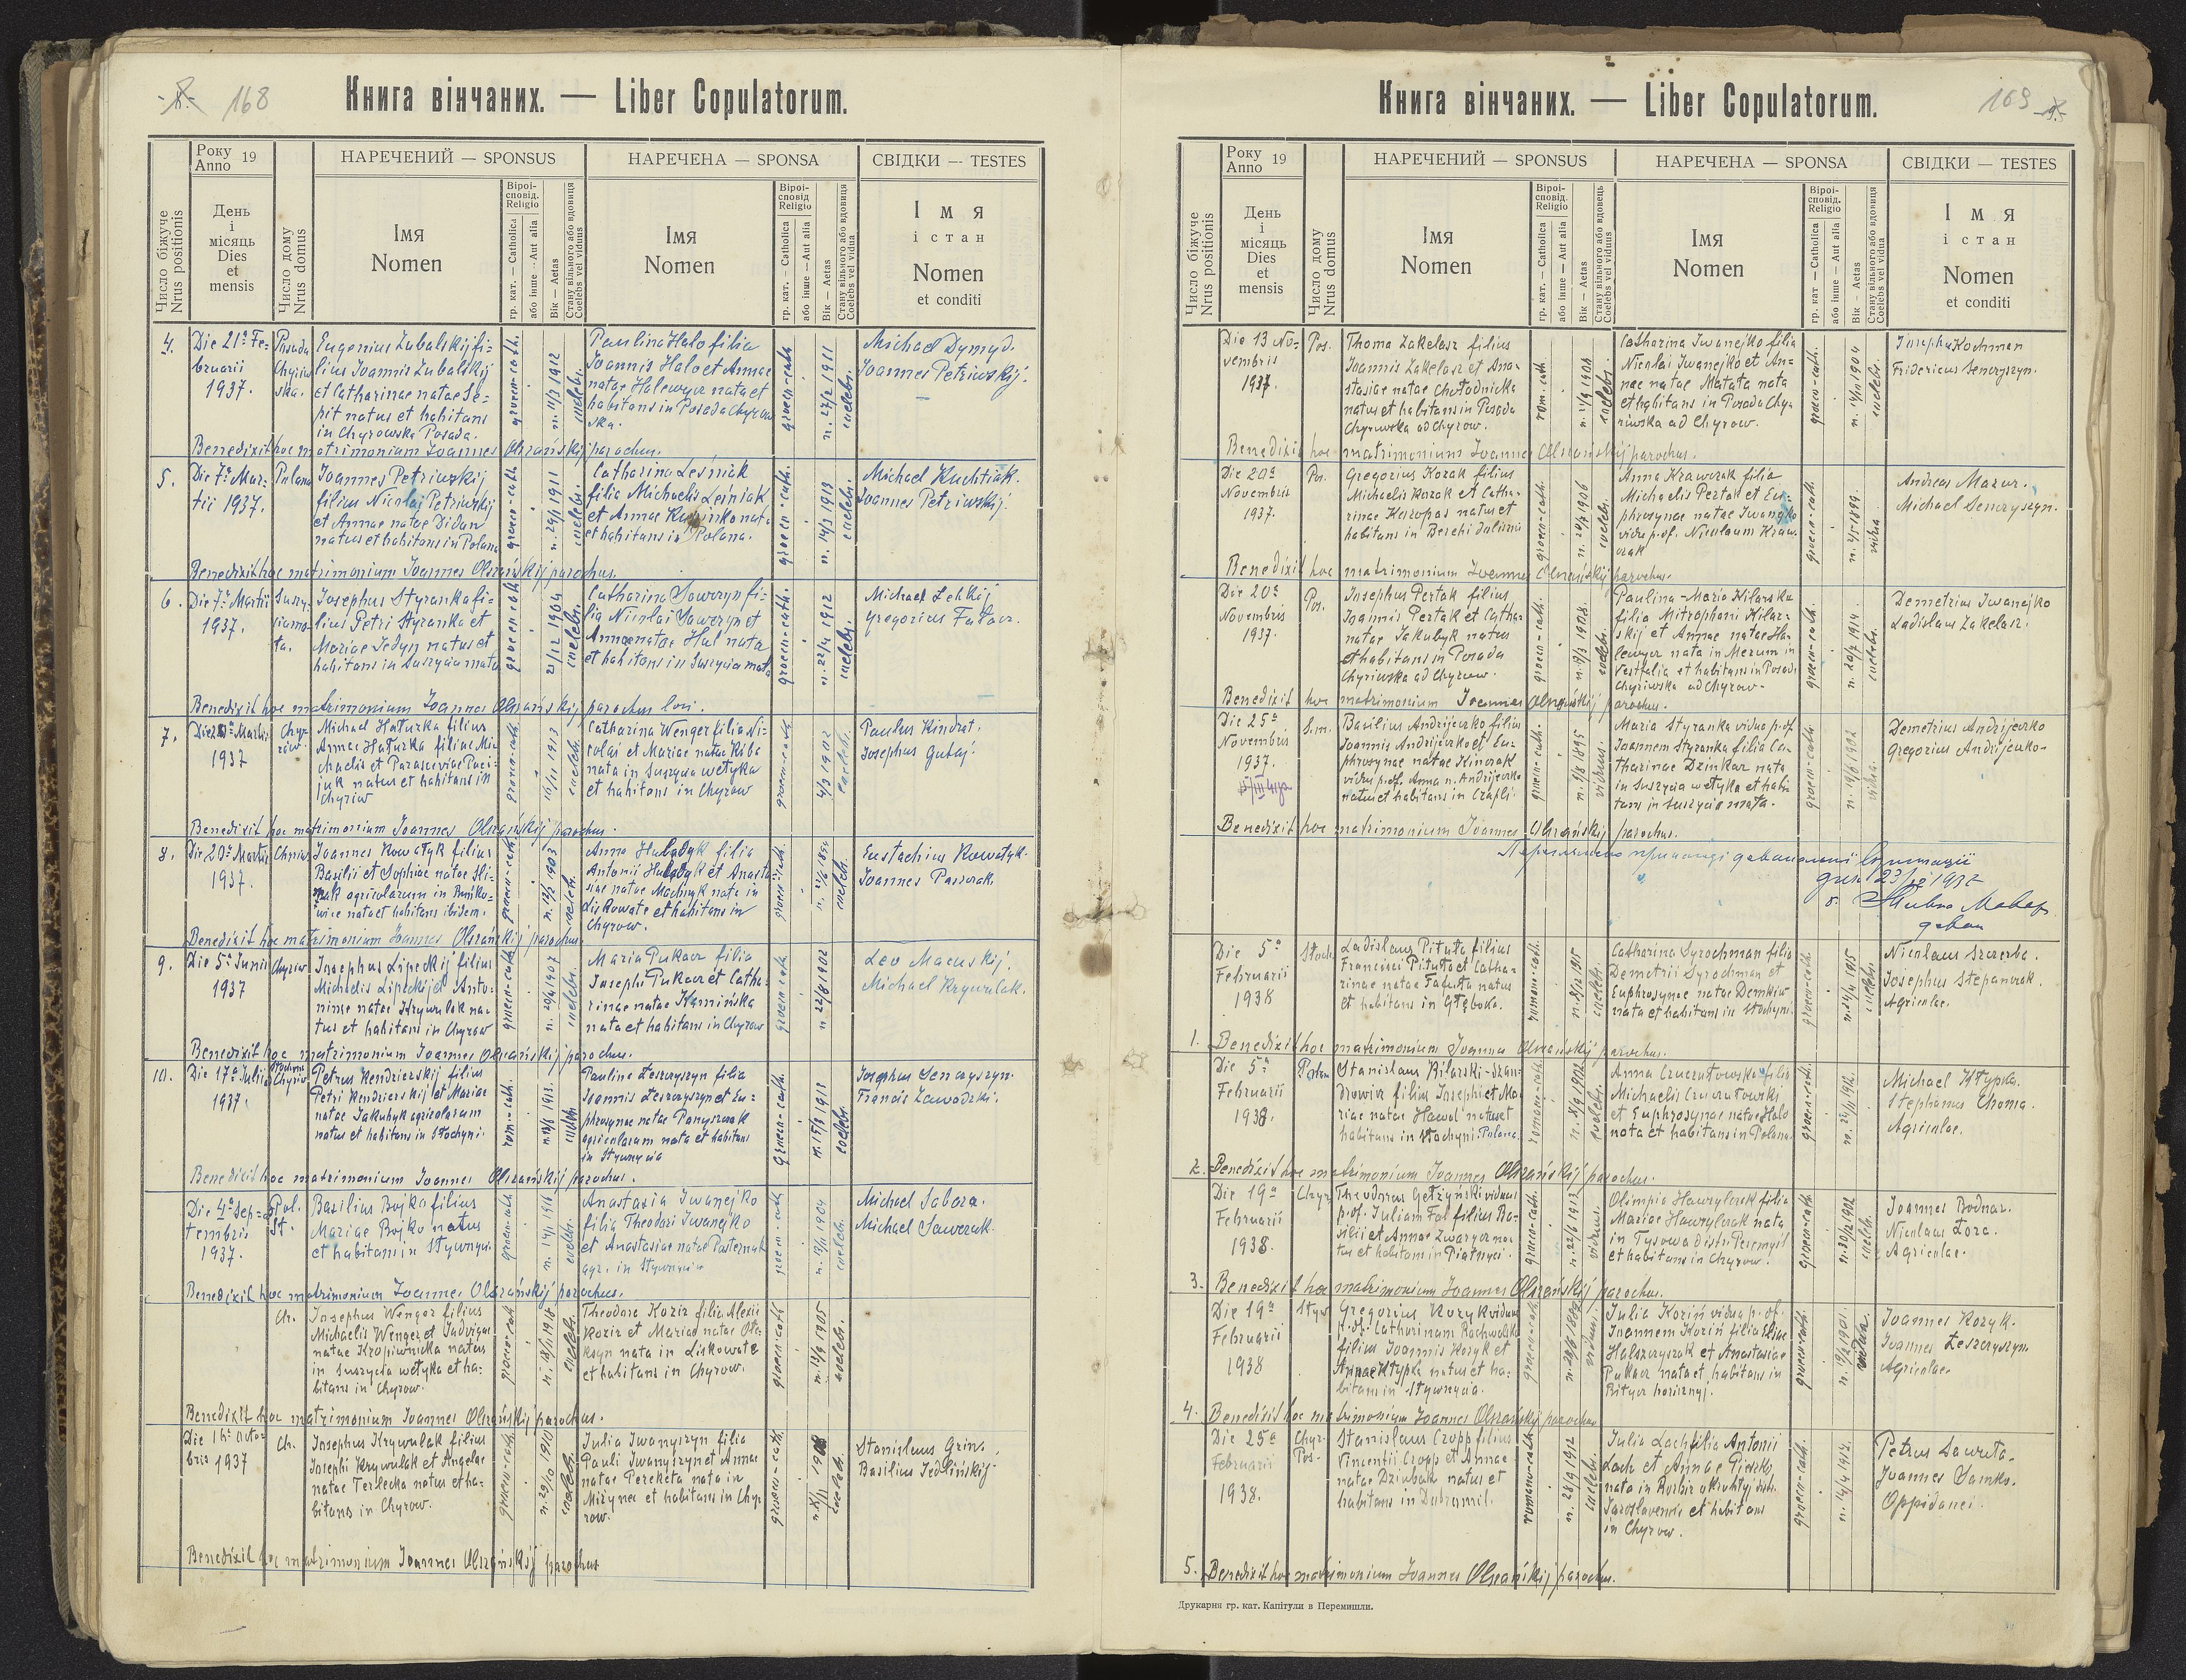 168
Книга вінчаних. — Liber Copulatorum.
Року
Anno 19
НАРЕЧЕНИЙ — SPONSUS
НАРЕЧЕНА — SPONSA
СВІДКИ — TESTES
Число біжуче
Nrus positionis
День
і
місяць
Dies
et
mensis
Число дому
Nrus domus
Імя
Nomen
Віроі-
сповід.
Religio
гр. кат. — Catholica
або інше — Aut alia
Вік — Aetas
Стану вільного або вдовець
Coelebs vel viduus
Імя
Nomen
Віроі-
сповід
Religio
гр. кат. — Catholica
або інше — Aut alia
Вік — Aetas
Стану вільного або вдовиця
Coelebs vel vidua
Імя
і стан
Nomen
et conditi
4.
Die 21ª Fe=
bruarii
1937.
Posada
Chyriw
ska.
Eugenius Zubalskij fi=
lius Joannis Zubalskij
et Catharinae natae Se=
pit natus et habitans
in Chyrowska Posada.
graeco-cath.
n. 11/3 1912
coelebs.
Paulina Halo filia
Joannis Halo et Annae
natae Halewycz nata et
habitans in Posada Chyrow
ska.
graeco-cath
n. 27/2 1911
coelebs.
Michael Dymyd.
Joannes Petriwskij.
Benedixit hoc matrimonium Joannes Olszańskij parochus.
5.
Die 7ª Mar=
tii 1937.
Polana
Joannes Petriwskij
filius Nicolai Petriwskij
et Annae natae Didan
natus et habitans in Polana
graeco-cath
n. 29/1 1911
coelebs.
Catharina Leśniak
filia Michaelis Leśniak
et Annae nata
et habitans in Polana.
graeco-cath.
n. 14/3 1913
coelebs.
Michael Kuchtiak.
Joannes Petriwskij.
Benedixit hoc matrimonium Joannes Olszańskij parochus.
6.
Die 7ª Martii
1937.
Suszy-
ciama-
ta.
Josephus Styranka fi=
lius Petri Styranka et
Mariae Jedyn natus et
habitans in Suszycia mała
graeco cath
21/12 1904
coelebs.
Catharina Soweryn fi=
lia Nicolai Soweryn et
Annae natae Hul nata
et habitans in Suszycia mała
graeco-cath.
n. 22/4 1912
coelebs.
Michael Lehkij
Gregorius Fafacz.
Benedixit hoc matrimonium Joannes Olszańskij parochus loci.
7.
Martii
1937
Chyr-
riw.
Michael Haturka filius
Annae Haturka filiae Mi-
chaelis et Parasceviae Paci-
juk natus et habitans in
Chyriw
graeco-cath.
16/11 1913
coelebs.
Catharina Wenger filia Ni-
colai et Mariae natae Kiba
nata in Suszycia wełyka
et habitans in Chyrow
graeco-cath
4/3 1902
coelebs.
Paulus Kindrat.
Josephus Gutaj.
Benedixit hoc matrimonium Joannes Olszańskij parochus.
8.
Die 20ª Martii
1937.
Chyriw
Joannes Kowałyk filius
Basilii et Sophiae natae
agricolarum in
natus et habitans ibidem.
graeco-cath.
n. 12/2 1903
coelebs.
Anna Huladyk filia
Antonii Huladyk et Anasta
siae natae Machnyk nata in
Liskowate et habitans in
Chyrow.
graeco-cath.
coelebs.
Eustachius Kowałyk.
Joannes Passorak.
Benedixit hoc matrimonium Joannes Olszańskij parochus.
9.
Die 5ª Junii
1937
Chyriw
Josephus Lipeckij filius
Michaelis Lipeckij et Anto-
ninae natae Krywulak na-
tus et habitans in Chyrow
graeco-cath
n. 29/4 1907
coelebs.
Maria Pukacz filia
Josephi Pukacz et Catha-
rinae natae Kamińska
nata et habitans in Chyrow
graeco cath.
n. 22/8 1902
Leo Macuskij.
Michael Krywulak.
Benedixit hoc matrimonium Joannes Olszańskij parochus.
10.
Die 17ª Julii
1937.
Stochyni
Chyriw
Petrus Kendzierskij filius
Petri Kendzierskij et Mariae
natae Jakubyk agricolarum
natus et habitans in Stochyni.
rom.-cath.
1913.
coelebs
Paulina Leszczyszyn filia
Joannis Leszczyszyn et Eu-
phrosynae natae Panyszczak
agricolarum nata et habitans
in Stywnycia
Graeco-cath.
n. 15/3 1913
coelebs
Josephus Senczyszyn.
Francis Zawadzki.
Benedixit hoc matrimonium Joannes Olszańskij parochus.
Die 4ª Sep=
tembris
1937.
Pol.
St.
Basilius Bojko filius
Mariae Bojko natus
et habitans in Stywnyci.
graeco-cath
n. 14/1 1916
coelebs.
Anastasia Jwanejko
filia Theodori Jwanejko
et Anastasiae natae Pasternak
agr. in Stywnycia
graeco-cath
n. 13/11 1904
coelebs.
Michael Sabora.
Michael Sawczak.
Benedixit hoc matrimonium Joannes Olszańskij parochus.
Ch.
Josephus Wenger filius
Michaelis Wenger et Jadwigae
natae Kropiwnicka natus
in Suszycia wełyka et ha-
bitans in Chyrow.
graeco-cath
n. 18/1 1918
coelebs.
Theodora Kozir filia Alexii
Kozir et Mariae natae Ole-
ksyn nata in Liskowate
et habitans in Chyrow.
graeco-cath
n. 12/9 1905
coelebs.
Benedixit hoc matrimonium Joannes Olszańskij parochus.
Die
bris 1937
Ch.
Josephus Krywulak filius
Josephi Krywulak et Angelae
natae Terlecka natus et ha-
bitans in Chyrow.
graeco-cath.
n. 29/10 1910
coelebs
Julia Jwanyszyn filia
Pauli Jwanyszyn et Annae
natae Perekota nata in
Miżynec et habitans in Chy-
row.
graeco-cath.
coelebs.
Stanislaus Grin.
Basilius Jedlińskij.
Benedixit hoc matrimonium Joannes Olszańskij parochus
169
Книга вінчаних. — Liber Copulatorum.
Року
Anno 19
НАРЕЧЕНИЙ — SPONSUS
НАРЕЧЕНА — SPONSA
СВІДКИ — TESTES
Число біжуче
Nrus positionis
День
і
місяць
Dies
et
mensis
Число дому
Nrus domus
Імя
Nomen
Віроі-
сповід.
Religio
гр. кат. — Catholica
або інше — Aut alia
Вік — Aetas
Стану вільного або вдовець
Coelebs vel viduus
Імя
Nomen
Віроі-
сповід.
Religio
гр. кат — Catholica
або інше — Aut alia
Вік — Aetas
Стану вільного або вдовиця
Coelebs vel vidua
Імя
і стан
Nomen
et conditi
Die 13 No-
vembris
1937.
Pos.
Thoma Zakelasz filius
Joannis Zakelasz et Ana-
stasiae natae Chołodnicka
natus et habitans in Posada
Chyrowska ad Chyrow.
rom.-cath.
coelebs.
Catharina Jwanejko filia
Nicolai Jwanejko et An-
nae natae Matała nata
et habitans in Posada Chy-
riwska ad Chyrow.
graeco-cath.
n. 24/11 1904
coelebs.
Josephus Kochman
Fridericus Senczyszyn.
Benedixit hoc matrimonium Joannes Olszańskij parochus.
Die 20ª
Novembris
1937.
Pos.
Gregorius Kozak filius
Michaelis Kozak et Catha-
rinae Karopas natus et
habitans in Berehi dolisnie
graeco-cath.
n. 24/2 1906
coelebs.
Anna Krawczak filia
Michaelis Pertak et Eu-
phrosynae natae Jwanejko
vidua p. def. Nicolaum Kraw-
czak
graeco-cath.
n. 2/5 1899.
vidua
Andreas Mazur.
Michael Senczyszyn.
Benedixit hoc matrimonium Joannes Olszańskij parochus.
Die 20ª
Novembris
1937.
Pos.
Josephus Pertak filius
Joannis Pertak et Catha-
natae Jakubyk natus
et habitans in Posada
Chyriwska ad Chyrow.
graeco-cath.
n. 9/3 1908.
coelebs.
Paulina-Maria Hilarska
filia Mitrophani Hilar-
skij et Annae natae Ha-
lewycz nata in Merum in
Vestfalia et habitans in Posada
Chyriwska ad Chyrow.
graeco-cath.
n. 20/7 1914.
coelebs.
Demetrius Jwanejko
Ladislaus Zakelasz.
Benedixit hoc matrimonium Joannes Olszańskij parochus.
Die 25ª
Novembris
1937.
S.m.
Basilius Andrijewko filius
Joannis Andrijewko et Eu-
phrosynae natae Kinczak
viduus p. def. Anna n. Andrijewko
natus et habitans in Czapli.
graeco-cath.
1895
viduus.
Maria Styranka vidua p. def.
Joannem Styranka filia Ca-
tharinae Dzinkar nata
in Suszycia wełyka et habi
tans in Suszycia mała.
graeco-cath.
1902
vidua.
Demetrius Andrijewko
Gregorius Andrijewko.
Benedixit hoc matrimonium Joannes Olszańskij parochus.
Переглянено при нагоді деканальної
дня 23/ 1937
декан
Die 5ª
Februarii
1938
Stoch.
Ladislaus Pituła filius
Francisci Pituła et Catha-
rinae natae Fafuła natus
et habitans in Głęboka.
romano-cath.
1915
coelebs.
Catharina Syrochman filia
Demetrii Syrochman et
Euphrosynae natae Demkiw
nata et habitans in Stochyni.
graeco-cath.
n. 24/11 1915
coelebs.
Nicolaus Szczerba.
Josephus Stepanczak.
Agricolae.
1.
Benedixit hoc matrimonium Joannes Olszańskij parochus.
Die 5ª
Februarii
1938.
Polana
Stanislaus Bilarski-Szan-
drowicz filius Josephi et Ma-
riae natae Hawal natus et
habitans in Stochyni. Polana.
romano-cath.
n. 8/9 1902
coelebs.
Anna Czuczułowska filia
Michaelis Czuczułowskij
et Euphrosynae natae Halo
nata et habitans in Polana.
graeco-cath.
1912.
Michael Kłypka.
Stephanus Choma.
Agricolae.
2.
Benedixit hoc matrimonium Joannes Olszańskij parochus.
Die 19ª
Februarii
1938.
Chyr.
Theodorus Gełżyński viduus
p. def. Juliam Fal filius Ba-
silii et Annae Zwarycz na-
tus et habitans in Piatnyci.
graeco-cath.
n. 22/6 1913
viduus.
Olimpia Hawrylczak filia
Mariae Hawrylczak nata
in Tysowa distr. Peremyśl
et habitans in Chyrow.
graeco-cath
n. 30/12 1902
coelebs.
Joannes Bodnar.
Nicolaus Łoza.
Agricolae.
3.
Benedixit hoc matrimonium Joannes Olszańskij parochus.
Die 19ª
Februarii
1938
Styw
Gregorius Kozyk viduus
p. def. Catharinam Rachwalska
filius Joannis Kozyk et
Annae Kłypka natus et ha-
bitans in Stywnycia.
graeco-cath.
viduus.
Julia Koziń vidua p. def.
Joannem Koziń filia Eliae
Halszczyszak et Anastasiae
Pukacz nata et habitans in
graeco-cath.
1901
vidua.
Joannes Kozyk.
Joannes Leszczyszyn
Agricolae.
4.
Benedixit hoc matrimonium Joannes Olszańskij parochus
Die 25ª
Februarii
1938.
Chyr.
Pos.
Stanislaus Czopp filius
Vincentii Czopp et Annae
natae Dziubak natus et
habitans in Dobromil.
romano-cath.
n. 28/9 1912
coelebs.
Julia Lach filia Antonii
Lach et Annae Pieszko
nata in Rozbir okruhłyj distr.
Jaroslavensis et habitans
in Chyrow.
graeco-cath.
n. 14/4 1914.
Petrus Dawruta.
Joannes Damko.
Oppidanei.
5.
Benedixit hoc matrimonium Joannes Olszańskij parochus.
Друкарня гр. кат. Капітули в Перемишли.